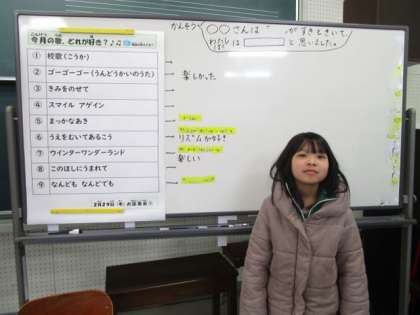 今月の歌、どれが好き？♪♫
① 校歌(こうか)
② ゴーゴーゴー(うんどうかいのうた)
③ きみをのせて
④ スマイル アゲイン
⑤ まっかなあき
⑥ うえをむいてあるこう
⑦ ウインターワンダーランド
⑧ このほしにうまれて
⑨ なんども なんどでも
2月29日
かんそう
○○さんは がすきときいて、
は と思いました。
楽しかった
リズムが好き
楽しい